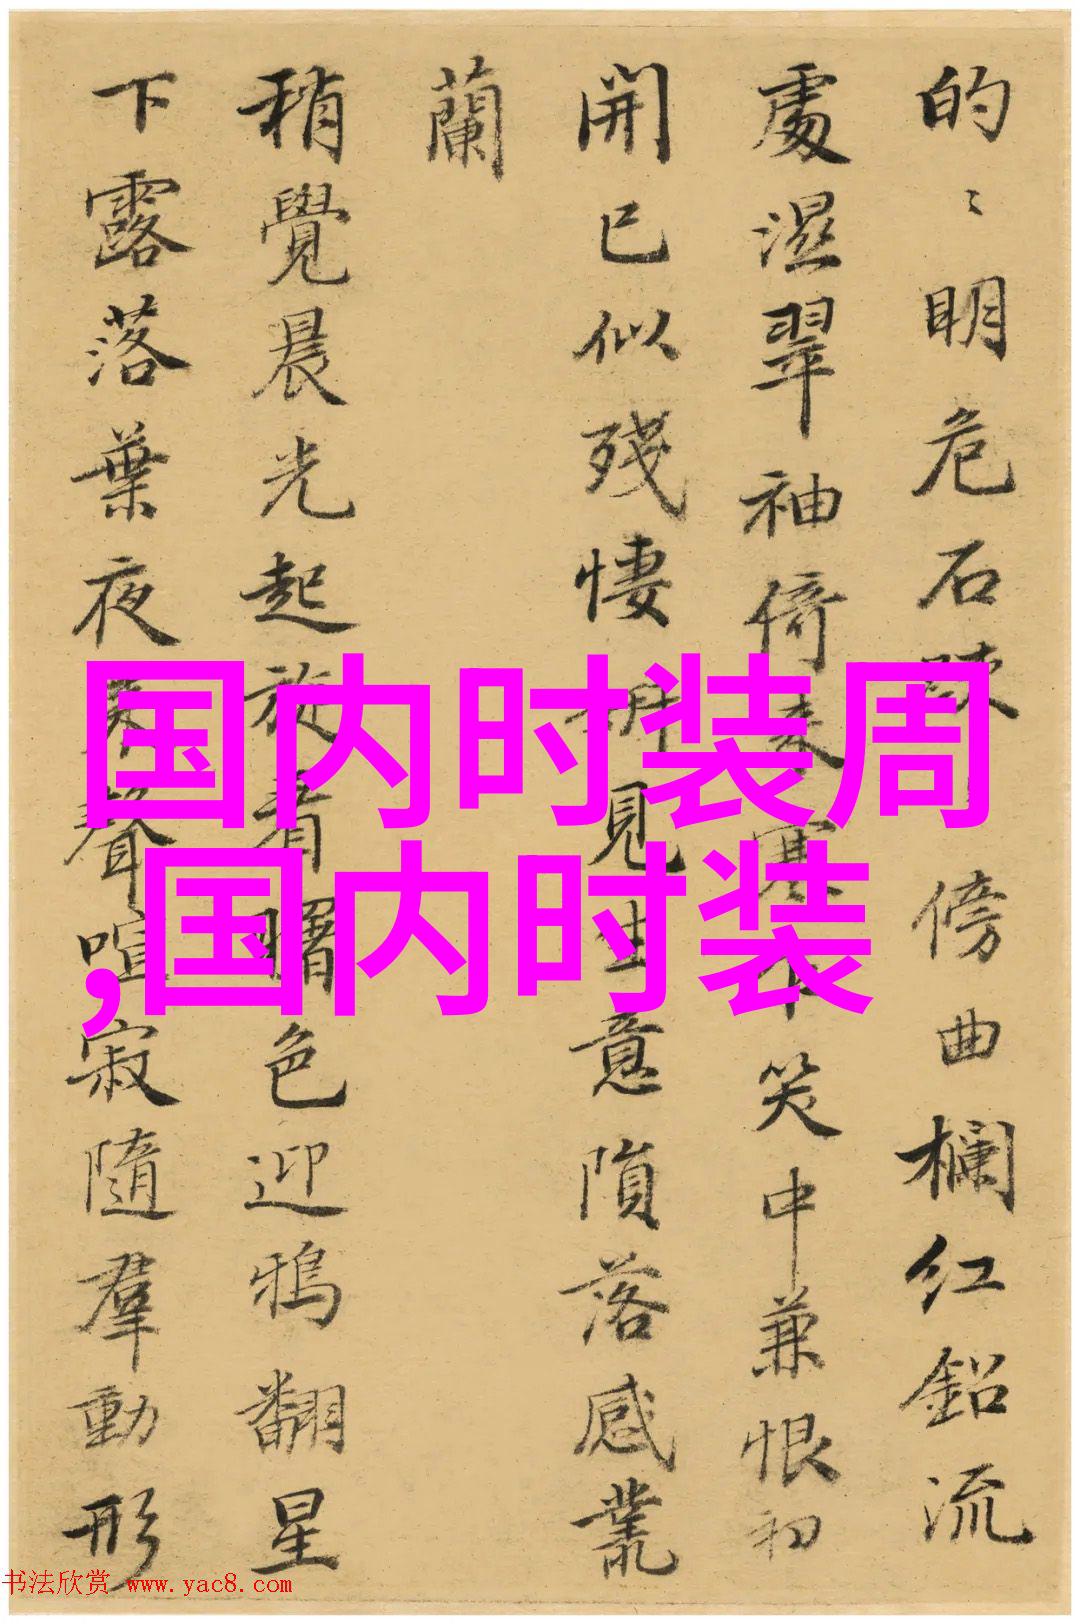 的〻明危石疎〻傍曲欄红鉛流
處濕翠袖倚来寒不笑中兼恨初
開已似殘悽見生意隕落感叢
蘭
稍覺晨光起旋看曙色迎鴉翻星
下露落葉夜来聲喧寂隨羣動形
国内时装周
,国内时装
书法欣赏 www.yac8.com